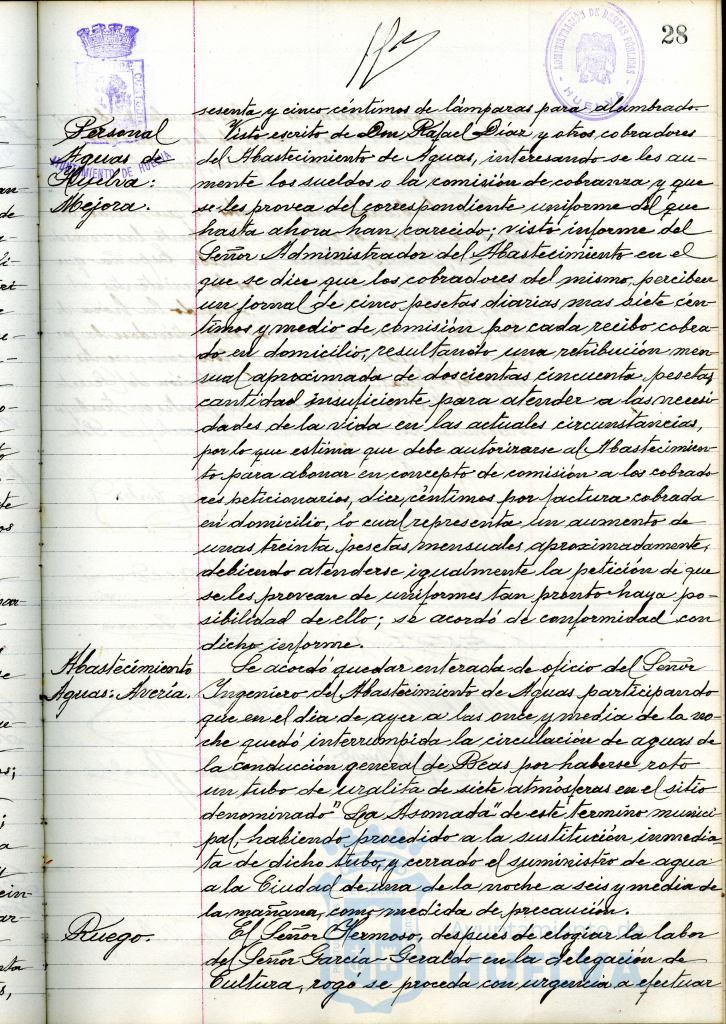 28
ADMINISTRACIÓN DE RENTAS PÚBLICAS
HUELVA
AYUNTAMIENTO DE HUELVA
sesenta y cinco céntimos de lámparas para alumbrado.
Personal
Aguas de
Huelva:
Mejora.
Visto escrito de Don Rafael Díaz y otros, cobradores
del Abastecimiento de Aguas, interesando se les au-
mente los sueldos o la comisión de cobranza y que
se les provea del correspondiente uniforme del que
hasta ahora han carecido; visto informe del
Señor Administrador del Abastecimiento en el
que se dice que los cobradores del mismo, perciben
un jornal de cinco pesetas diarias mas siete cén-
timos y medio de comisión por cada recibo cobra-
do en domicilio, resultando una retribución men-
sual aproximada de doscientas cincuenta pesetas,
cantidad insuficiente para atender a las necesi-
dades de la vida en las actuales circunstancias,
por lo que estima que debe autorizarse al Abastecimien-
to para abonar en concepto de comisión a los cobrado-
res peticionarios, diez céntimos por factura cobrada
en domicilio, lo cual representa un aumento de
unas treinta pesetas mensuales aproximadamente,
debiendo atenderse igualmente la petición de que
se les provean de uniformes tan pronto haya po-
sibilidad de ello; se acordó de conformidad con
dicho informe.
Abastecimiento
Aguas: Avería.
Se acordó quedar enterada de oficio del Señor
Ingeniero del Abastecimiento de Aguas participando
que en el dia de ayer a las once y media de la no-
che quedó interrumpida la circulación de aguas de
la conducción general de Beas por haberse roto
un tubo de uralita de siete atmósferas en el sitio
denominado "La Asomada" de este término munici-
pal, habiendo procedido a la sustitución inmedia-
ta de dicho tubo, y cerrado el suministro de agua
a la Ciudad de una de la noche a seis y media de
la mañana, como medida de precaución.
Ruego.
El Señor Hermoso, después de elogiar la labor
del Señor García-Geraldo en la delegación de
Cultura, rogó se proceda con urgencia a efectuar
Ayuntamiento de
HUELVA